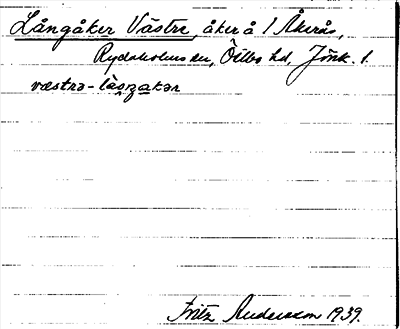 Långåker Västre, åker å 1 Åkerås,
Rydaholms sn, Östbo hd, Jönk. l.
væstrə-låŋak̂ər
Fritz Andersson 1939.